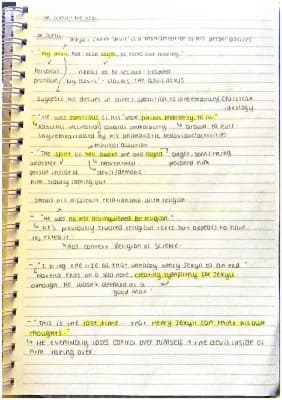 DR JEKYLL AND HYDE
DR JEKYLL
Jekyll's inner 'devil' is a manifestation of his deeper desires
"My devil had been caged, he came out roaring."
Personal needs to be let out - trapped
pronoun 'My devil' - claims the devil as his
suggests his desires in direct opposition to contemporary Christian
ideology
"He was conscious of his" more furious propensity to ill"
Natural inclination towards immorality drawn to evil
"The spirit of hell awoke in me and raged" anger, something
another movement possessed him
person inside of devil/demonic
him slowly coming out
Shows his difficult relationship with religion
- "He was no less distinguished for religion."
He's previously trusted religious texts but appears to have
rejected it.
Also context - religion vs science.
- "I bring the life of that unhappy Henry Jekyll to an end."
Novella ends on a sad note, creating sympathy for Jekyll
although, he wasn't deemed as a
'good man'
- "This is the last time that Henry Jekyll can think his own
thoughts."
He eventually loses control over himself & the devil inside of
him taking over.